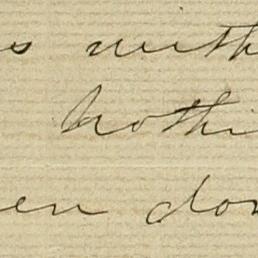 s with
nothi
en don